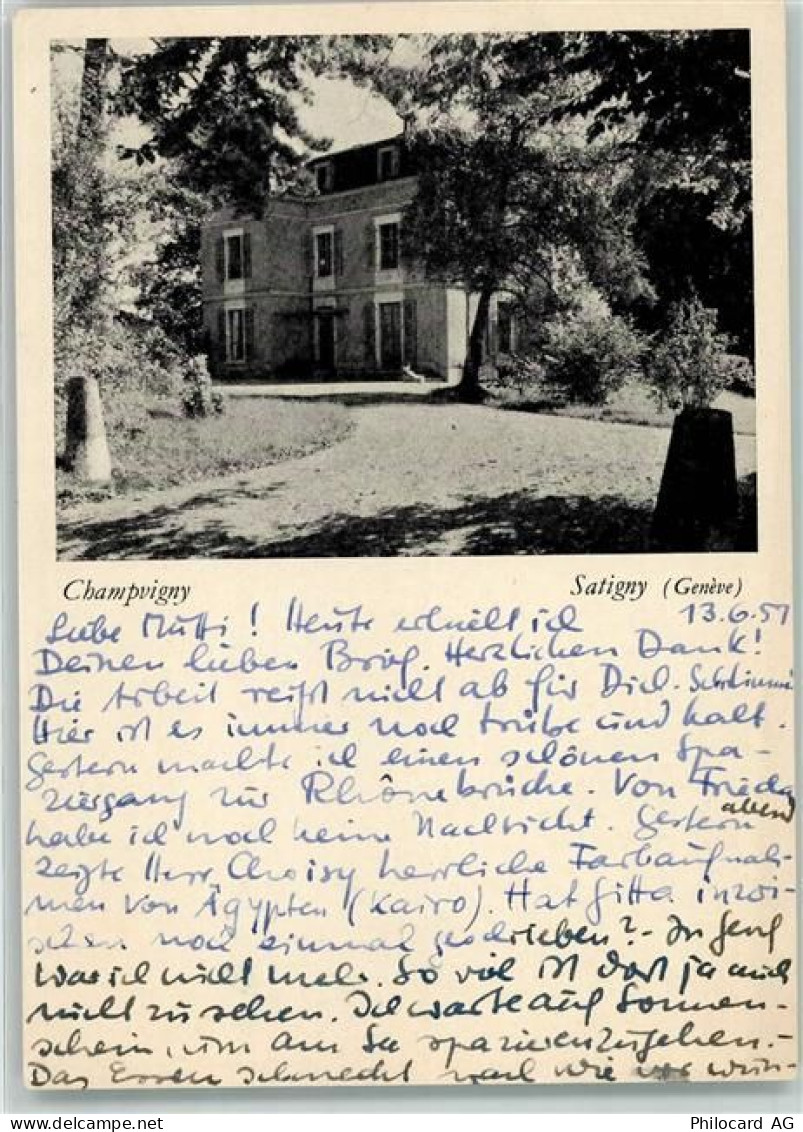 Champvigny
Satigny (Genève)
13.6.57
Liebe Mutti! Heute erhielt ich
Deinen lieben Brief. Herzlichen Dank!
Die Arbeit reißt nicht ab für Dich.
Hier ist es immer noch trübe und kalt.
Gestern machte ich einen schönen Spa-
ziergang zur Rhônebrücke. Von Frieda
habe ich noch keine Nachricht. Gestern abend
zeigte Herr Choisy herrliche Farbaufnah-
men von Ägypten (Kairo). Hat Gitta inzwi-
schen noch einmal geschrieben? - In Genf
war ich nicht mehr. So viel ist dort ja auch
nicht zu sehen. Ich warte auf Sonnen-
schein, um am See spazierenzugehen. -
Das Essen schmeckt nach wie vor wun-
Philocard AG